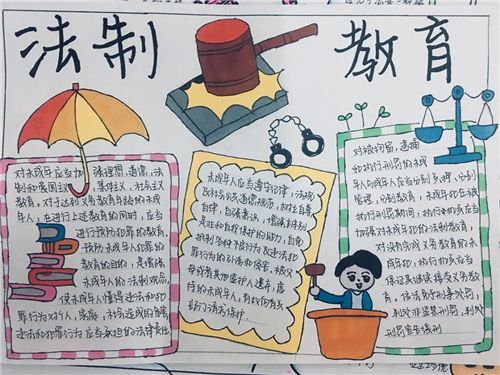 法制
教育
对未成年应当加强理想、道德、法
制和爱国主义、集体主义、社会主义
教育。对于达到义务教育年龄的未成
年人，在进行上述教育的同时，应当
进行预防犯罪的教育。
预防未成年人犯罪的
教育的目的，是增强
未成年人的法制观念，
使未成年人懂得违法和犯
罪行为对个人、家庭、社会造成的
违法和犯罪行为应当承担的法律责任
未成年人应当遵守法律、法规
及社会公共道德规范，树立自尊
自律、自强意识，增强辨别
是非和自我保护的能力，自觉
抵制各种不良行为及违法犯
罪行为的引诱和侵害。被父
母或者其他监护人遗弃、虐
待的未成年人，有权向
部门请求保护
对被拘留、逮捕
和执行刑罚的未成
年人与成年人应当分别关押、分别
管理、分别教育。未成年犯在被
执行刑罚期间，执行机关应当
加强对未成年犯的法制教育，
对没有完成义务教育的未
成年犯，执行机关应当
保证其继续接受义务教
育。依法免予刑事处罚、
判处非监禁刑罚、判处
刑罚宣告缓刑